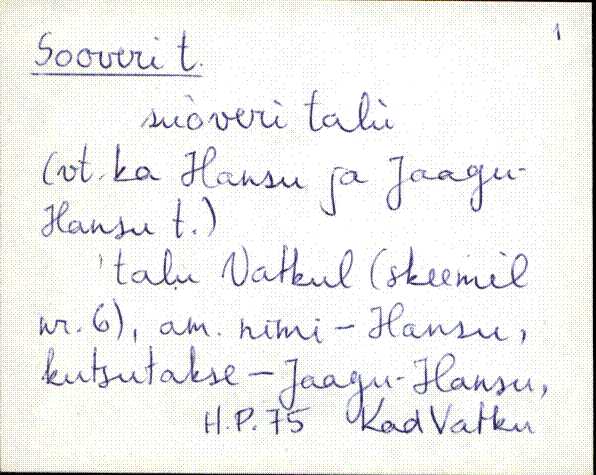 1
Sooveri t.
suòveri talù
(vt. ka Hansu ja Jaagu-
Hansu t.)
talu Vatkul (skeemil
nr. 6), am. nimi - Hansu,
kutsutakse - Jaagu-Hansu,
H.P. 75 Kad Vatku